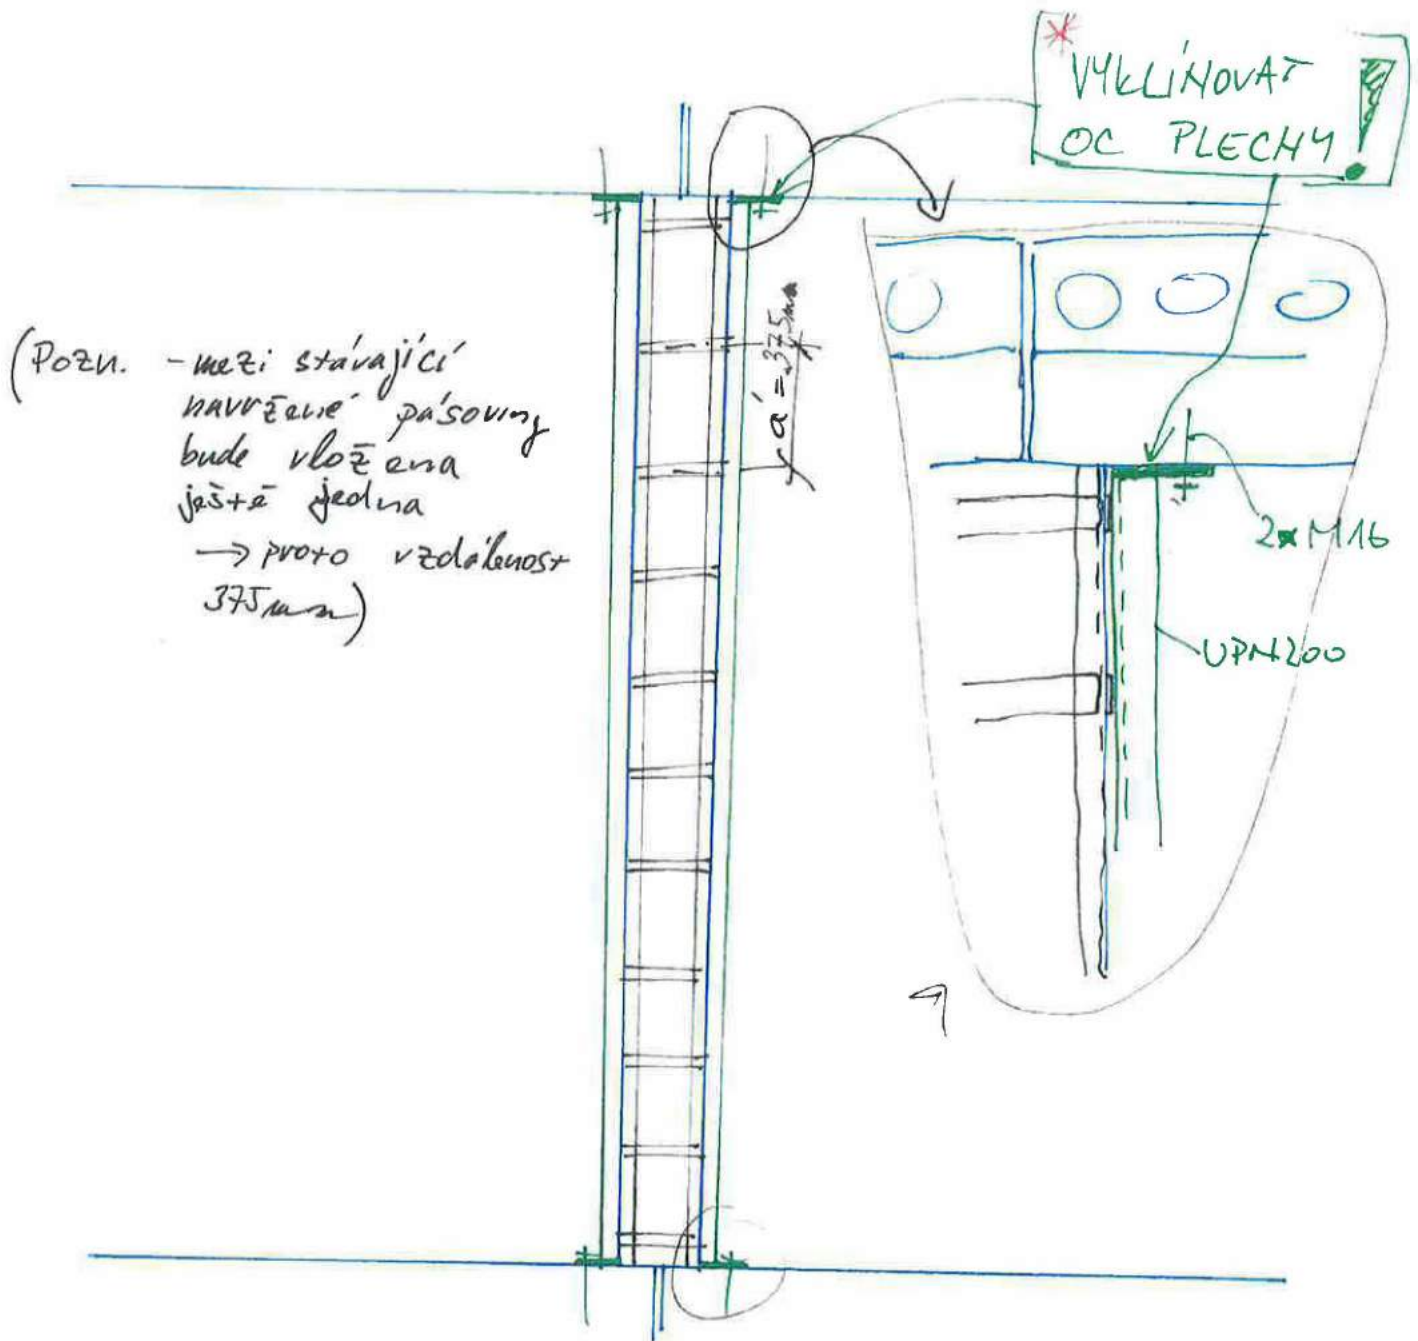 * VYKLÍNOVAT
OC PLECHY !
(Pozn. - mezi stávající
navržené pásoviny
bude vložena
ještě jedna
→ proto vzdálenost
375mm)
á = 375mm
2xM16
UPN200